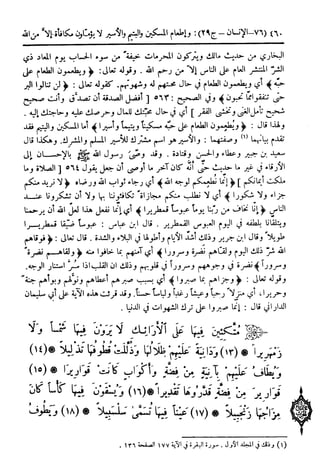 ٦٠) (٧٦—الإنسان—ج ٢٩) : وإطعام المسكين واليتيم والأسير لا يؤملون مكافأة إلا من الله
البخاري من حديث مالك ويتركون المحرمات خيفة من سوء الحساب يوم المعاد ذي
الشر المنتشر العام على الناس إلا من رحم الله . وقوله تعالى : ﴿ ويطعمون الطعام على
حبه ﴾ أي ويطعمون الطعام في حال محبتهم له وشهوتهم. كقوله تعالى : ﴿ لن تنالوا البر
حتى تنفقوا مما تحبون ﴾ وفي الصحيح : ٥٦٣ [ أفضل الصدقة أن تصدق وأنت صحيح
شحيح تأمل الغنى وتخشى الفقر ] أي في حال محبتك للمال وحرصك عليه وحاجتك إليه .
ولهذا قال : ﴿ ويطعمون الطعام على حبه مسكيناً ويتيماً وأسيراً ﴾ أما المسكين واليتيم فقد
تقدم بيانهما (١) وصفتهما : والأسير هو اسم مشترك للأسير المسلم والمشرك. وهكذا قال
سعيد بن جبير وعطاء والحسن وقتادة . وقد وصى رسول الله ﷺ بالإحسان إلى
الأرقاء في غير ما حديث حتى أنه كان آخر ما أوصى أن جعل يقول ٥٦٤ [ الصلاة وما
ملكت أيمانكم ] ﴿ إنما نطعمكم لوجه الله ﴾ أي رجاء ثواب الله ورضاه ﴿ لا نريد منكم
جزاء ولا شكورا ﴾ أي لا نطلب منكم مجازاة تكافئوننا بها ولا أن تشكرونا عند
الناس ﴿ إنا نخاف من ربنا يوماً عبوساً قمطريرا ﴾ أي إنما نفعل هذا لعل الله أن يرحمنا
ويتلقانا بلطفه في اليوم العبوس القمطرير . قال ابن عباس : عبوساً ضيقاً قمطريراً
طويلاً وقال ابن جرير وذلك أشد الأيام وأطولها في البلاء والشدة . قال تعالى : ﴿ فوقاهم
الله شر ذلك اليوم ولقاهم نضرة وسرورا ﴾ أي آمنهم مما خافوا منه ﴿ ولقاهم نضرة
وسرورا ﴾ نضرة في وجوههم وسروراً في قلوبهم وذلك ان القلب إذا سر استنار الوجه.
وقوله تعالى : ﴿ وجزاهم بما صبروا ﴾ أي بسبب صبرهم أعطاهم ونولهم وبوأهم جنة
وحريرا، أي منزلاً رحباً وعيشاً رغداً ولباساً حسناً. وقد قرئت هذه الآية على أبي سليمان
الداراني قال : إنما صبروا على ترك الشهوات في الدنيا .
مُّتَّكِئِينَ فِيهَا عَلَى الْأَرَائِكِ لَا يَرَوْنَ فِيهَا شَمْسًا وَلَا
زَمْهَرِيرًا * (١٣) وَدَانِيَةً عَلَيْهِمْ ظِلَالُهَا وَذُلِّلَتْ قُطُوفُهَا تَذْلِيلًا * (١٤)
وَيُطَافُ عَلَيْهِم بِآنِيَةٍ مِّن فِضَّةٍ وَأَكْوَابٍ كَانَتْ قَوَارِيرَا * (١٥)
قَوَارِيرَ مِن فِضَّةٍ قَدَّرُوهَا تَقْدِيرًا * (١٦) وَيُسْقَوْنَ فِيهَا كَأْسًا كَانَ
مِزَاجُهَا زَنجَبِيلًا * (١٧) عَيْنًا فِيهَا تُسَمَّىٰ سَلْسَبِيلًا * (١٨) وَيَطُوفُ
(١) وذلك في المجلد الأول . سورة البقرة في الآية ١٧٧ الصفحة ١٣٦ .